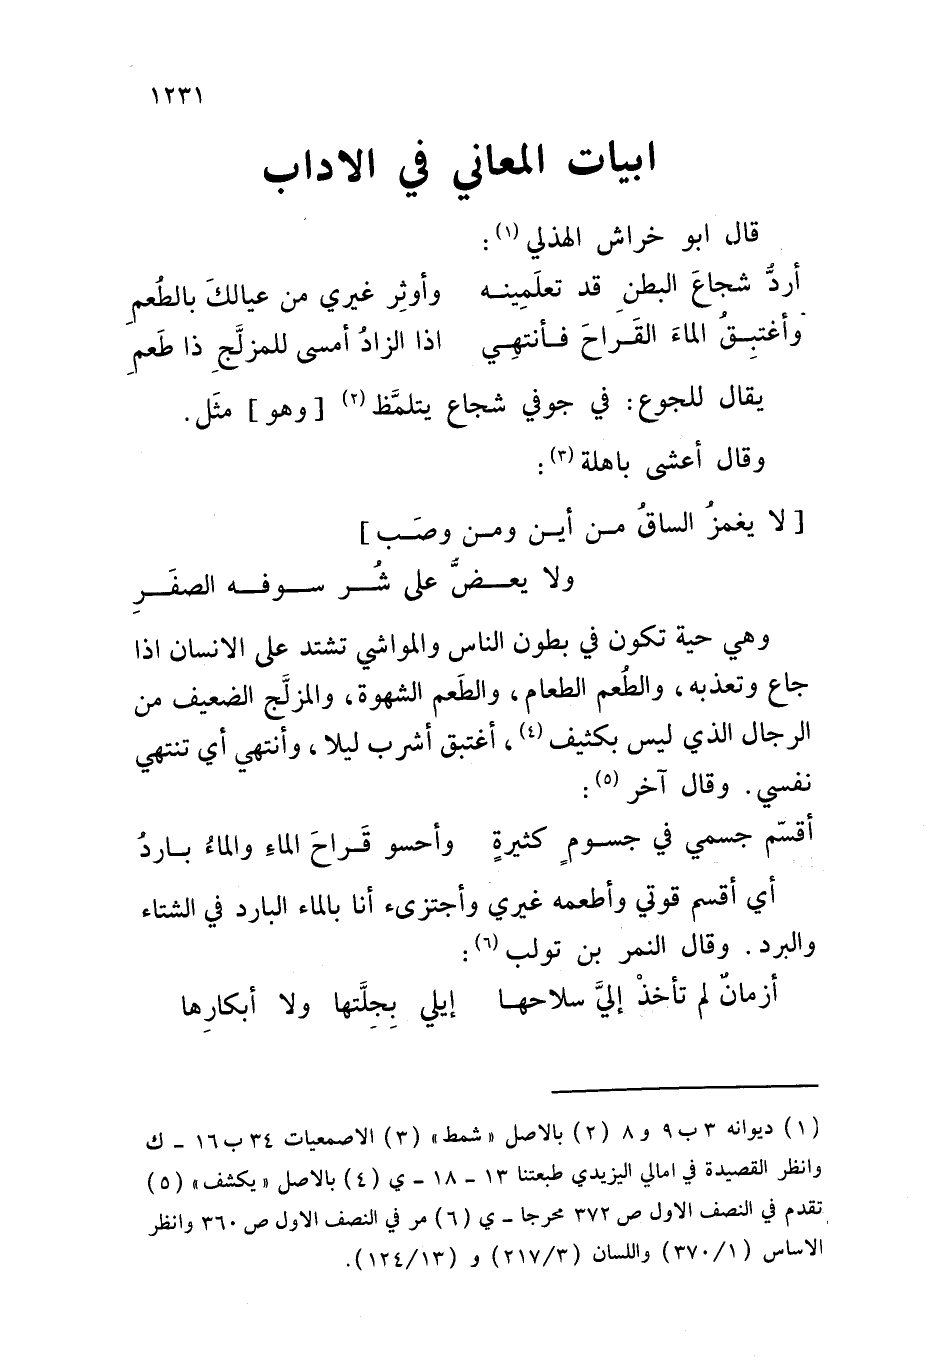 ١٢٣١
ابيات المعاني في الاداب
قال ابو خراش الهذلي (١) :
أردُّ شجاعَ البطنِ قد تعلَمِينه وأوثِر غيري من عيالكَ بالطُعمِ
وأغتبِقُ الماءَ القَراحَ فأنتهِي اذا الزادُ أمسى للمزلَّجِ ذا طَعمِ
يقال للجوع : في جوفي شجاع يتلمَّظ (٢) [ وهو ] مثَل .
وقال أعشى باهلة (٣) :
[ لا يغمزُ الساقُ من أين ومن وصَب ]
ولا يعضُّ على شُر سوفه الصفَرِ
وهي حية تكون في بطون الناس والمواشي تشتد على الانسان اذا
جاع وتعذبه ، والطُعم الطعام ، والطَعم الشهوة ، والمزلَّج الضعيف من
الرجال الذي ليس بكثيف (٤) ، أغتبق أشرب ليلا ، وأنتهي أي تنتهي
نفسي . وقال آخر (٥) :
أقسّم جسمي في جسومٍ كثيرةٍ وأحسو قَراحَ الماءِ والماءُ باردُ
أي أقسم قوتي وأطعمه غيري وأجتزىء أنا بالماء البارد في الشتاء
والبرد . وقال النمر بن تولب (٦) :
أزمانٌ لم تأخذْ إليَّ سلاحها إيلي بِجِلَّتها ولا أبكارِها
(١) ديوانه ٣ ب ٩ و ٨ (٢) بالاصل « شمط » (٣) الاصمعيات ٣٤ ب ١٦ ـ ك
وانظر القصيدة في امالي اليزيدي طبعتنا ١٣ ـ ١٨ ـ ي (٤) بالاصل « يكشف » (٥)
تقدم في النصف الاول ص ٣٧٢ محرجا ـ ي (٦) مر في النصف الاول ص ٣٦٠ وانظر
الاساس (٣٧٠/١) واللسان (٢١٧/٣) و (١٢٤/١٣) .